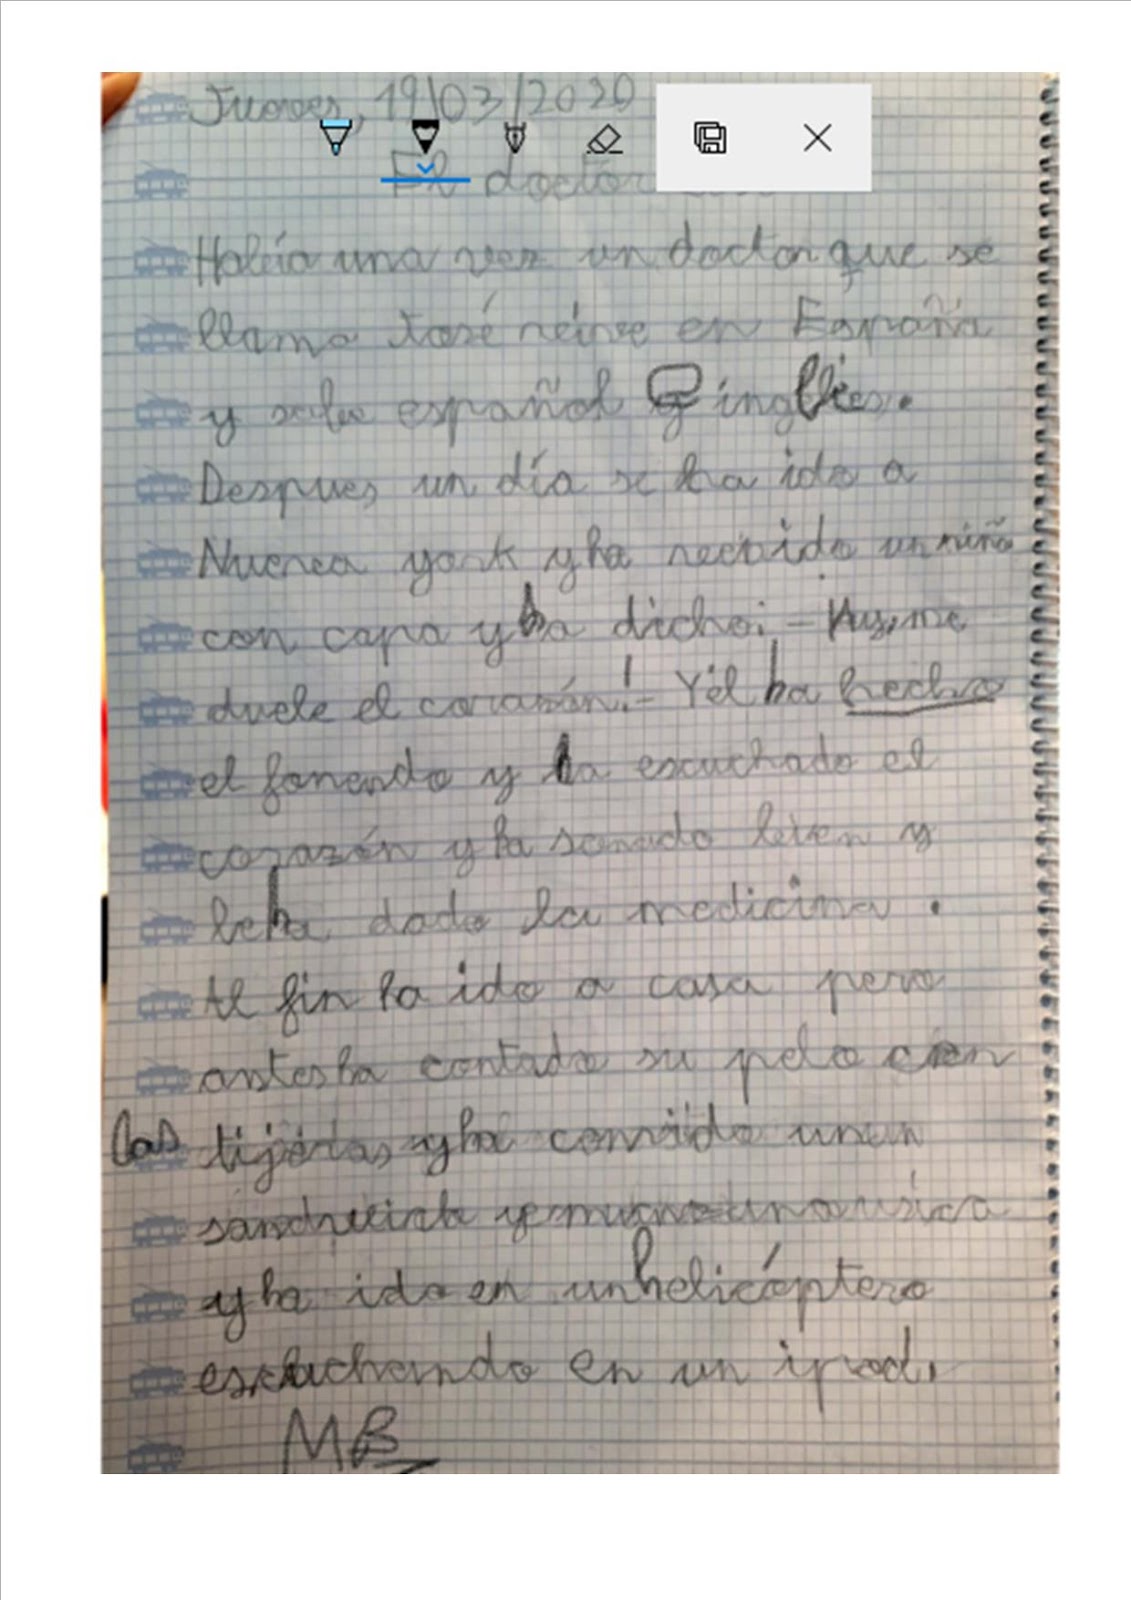 Jueves, 19/03/2020
El doctor
Había una vez un doctor que se
llama José vive en España
y sabe español e inglés.
Despues un día se ha ido a
Nueva york y ha recibido un niño
con capa y ha dicho: - Huy, me
duele el corazón! - Y él ha hecho
el fonendo y ha escuchado el
corazón y ha sonado bien y
le ha dado la medicina.
Al fin ha ido a casa pero
antes ha contado su pelo con
las tijeras y ha comido un
sandwich y música
y ha ido en un helicóptero
escuchando en un ipod.
MB